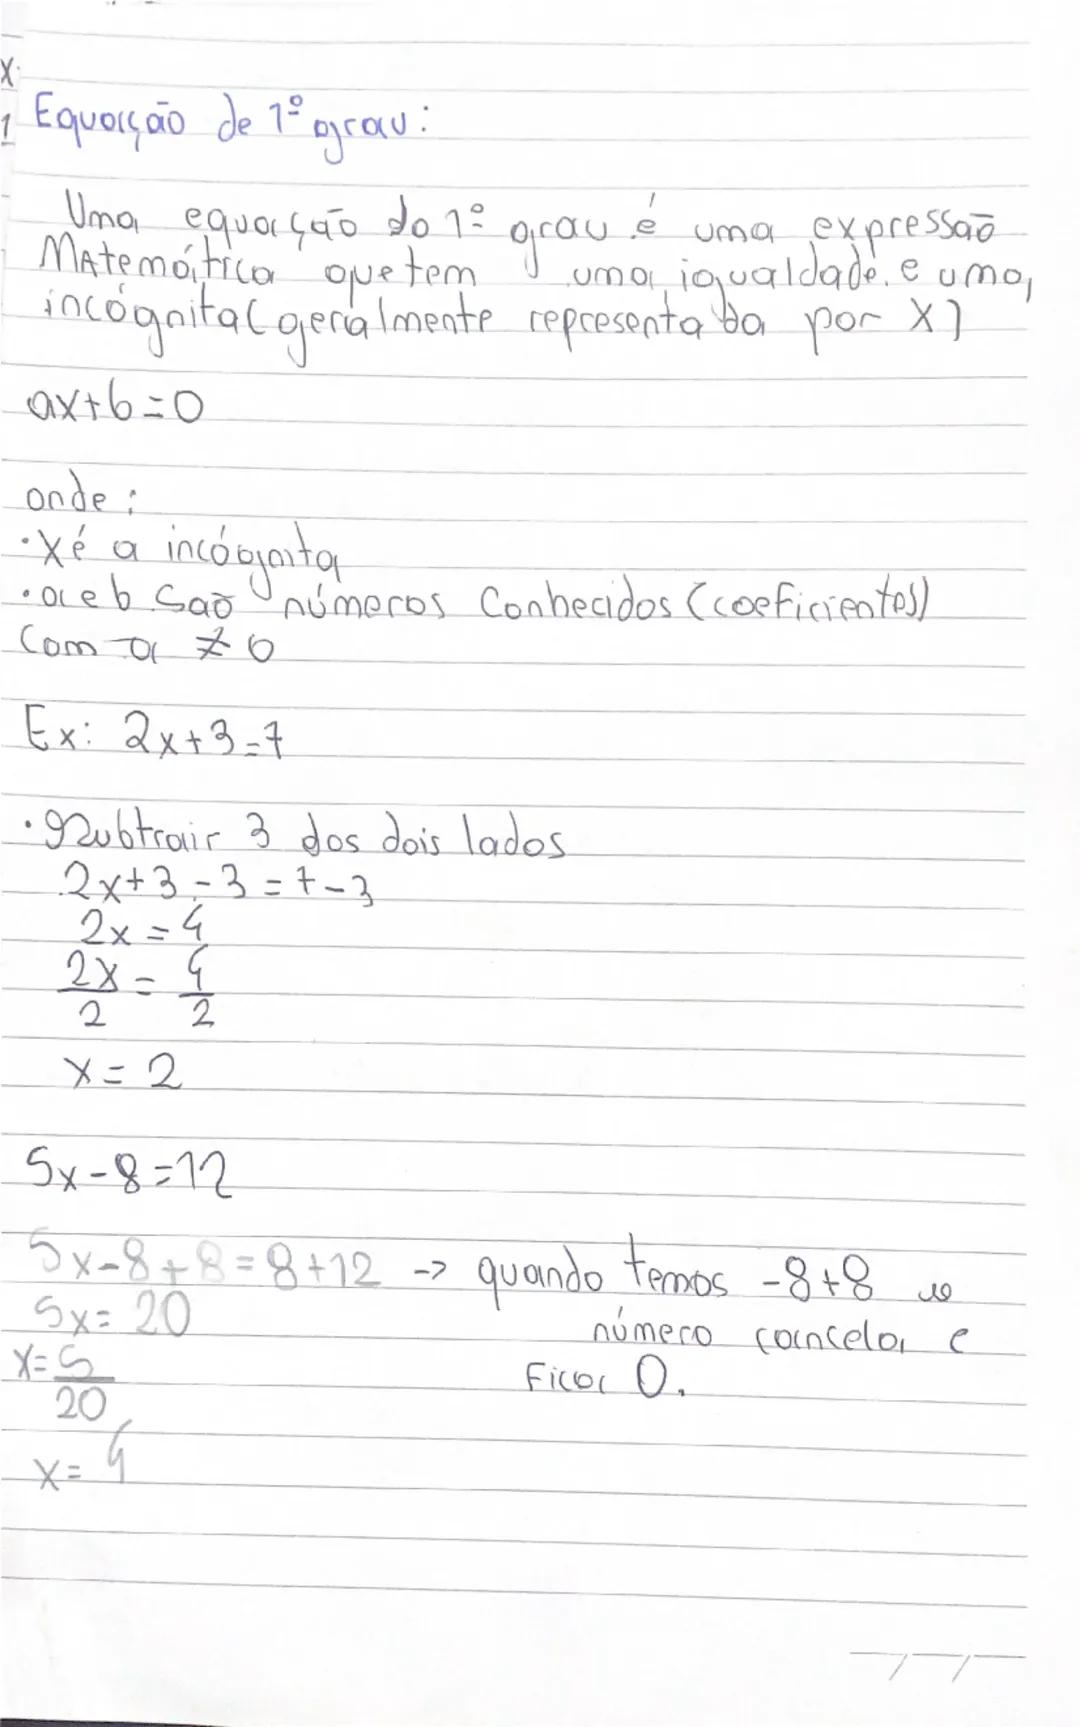 X
1
Equação de 1º grau:
Uma equação do 1º grau é uma expressão
Matemática que tem uma igualdade e uma
incógnita (geralmente representada por X)
ax+b=0
onde:
•X é a incógnita
•a e b são números Conhecidos (coeficientes)
Com a ≠ 0
Ex: 2x+3=7
•Subtrair 3 dos dois lados
2x+3-3=7-3
2x=4
2x = 4
2 2
x=2
5x-8=12
5x-8+8=8+12 -> quando temos -8+8
5x=20
número cancela e
x=5
20
Fica 0.
x=4